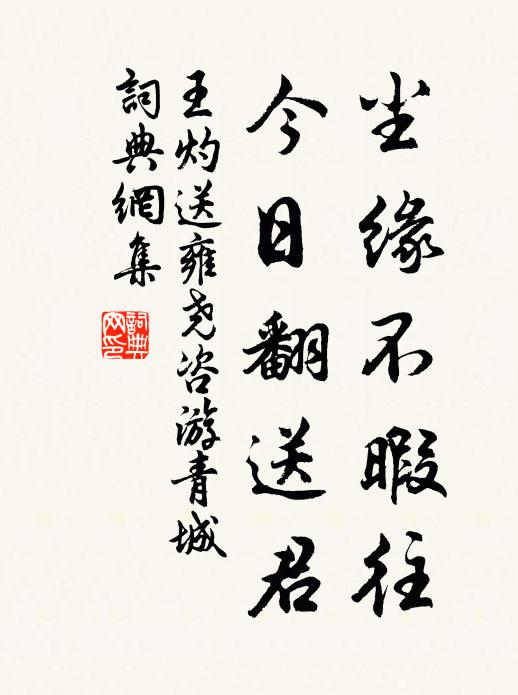 尘缘不暇往
今日翻送君
王灼送雍尧咨游青城
詞典網集
詞典
网印